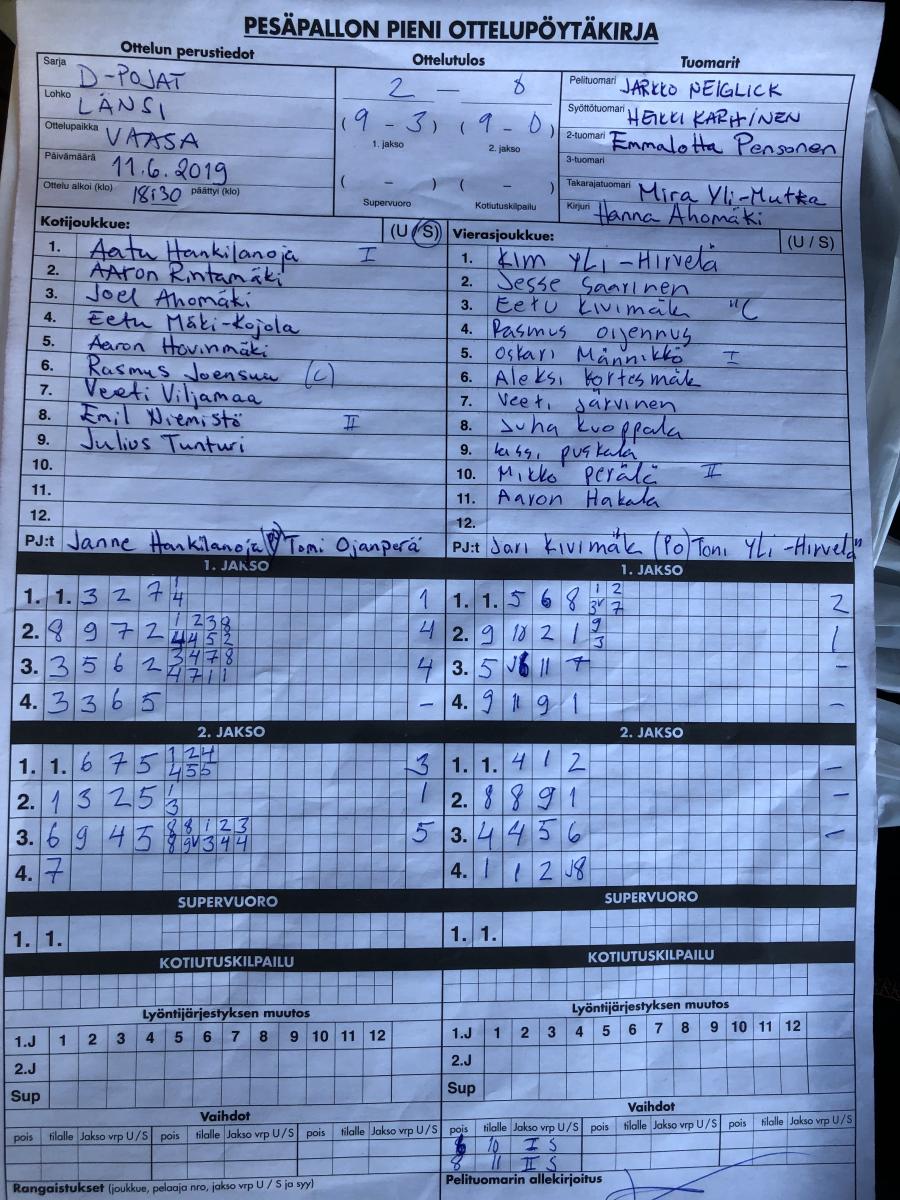 PESÄPALLON PIENI OTTELUPÖYTÄKIRJA
Ottelun perustiedot
Ottelutulos
Tuomarit
Sarja D-POJAT
Lohko LÄNSI
Ottelupaikka VAASA
Päivämäärä 11.6.2019
Ottelu alkoi (klo) 18:30 päättyi (klo)
2 — 8
(9 - 3) (9 - 0)
1. jakso 2. jakso
( - ) ( - )
Supervuoro Kotiutuskilpailu
Pelituomari JARKKO NEIGLICK
Syöttötuomari HEIKKI KARHINEN
2-tuomari Emmalotta Pensonen
3-tuomari
Takarajatuomari Mira Yli-Mutka
Kirjuri Hanna Ahomäki
Kotijoukkue: (U / S)
1. Aatu Hankilanoja I
2. AAron Rintamäki
3. Joel Ahomäki
4. Eetu Mäki-Kojola
5. Aaron Hovinmäki
6. Rasmus Joensuu (C)
7. Veeti Viljamaa
8. Emil Niemistö II
9. Julius Tunturi
10.
11.
12.
PJ:t Janne Hankilanoja Tomi Ojanperä
Vierasjoukkue: (U / S)
1. Kim YLi-Hirvelä
2. Jesse Saarinen
3. Eetu Kivimäk "C
4. Rasmus oijennus
5. Oskari Männikkö I
6. Aleksi Kortesmäk
7. Veeti Järvinen
8. Juha Kuoppala
9. Lassi puskala
10. Mikko perälä II
11. Aaron Hakala
12.
PJ:t Jari Kivimäk (Po) Toni YLi-Hirvelä
1. JAKSO
1. 1. 3 2 7 1 1
4
2. 8 9 7 2 1 2 3 8 4
4 4 5 2
3. 3 5 6 2 3 4 7 8 4
4 7 1 1
4. 3 3 6 5 –
1. JAKSO
1. 1. 5 6 8 1 2 2
3v 7
2. 9 10 2 1 9 1
3
3. 5 J6 11 7 –
4. 9 11 9 1 –
2. JAKSO
1. 1. 6 7 5 1 2 4 3
4 5 5
2. 1 3 2 5 1 1
3
3. 6 9 4 5 8 8 1 2 3 5
8 9v 3 4 4
4. 7
2. JAKSO
1. 1. 4 1 2 –
2. 8 8 9 1 –
3. 4 4 5 6 –
4. 1 1 2 J8
SUPERVUORO
1. 1.
SUPERVUORO
1. 1.
KOTIUTUSKILPAILU
KOTIUTUSKILPAILU
Lyöntijärjestyksen muutos
1.J 1 2 3 4 5 6 7 8 9 10 11 12
2.J
Sup
Lyöntijärjestyksen muutos
1.J 1 2 3 4 5 6 7 8 9 10 11 12
2.J
Sup
Vaihdot
pois tilalle Jakso vrp U / S pois tilalle Jakso vrp U / S pois tilalle Jakso vrp U / S
Vaihdot
pois tilalle Jakso vrp U / S pois tilalle Jakso vrp U / S pois tilalle Jakso vrp U / S
10 I S
8 11 II S
Rangaistukset (joukkue, pelaaja nro, jakso vrp U / S ja syy)
Pelituomarin allekirjoitus